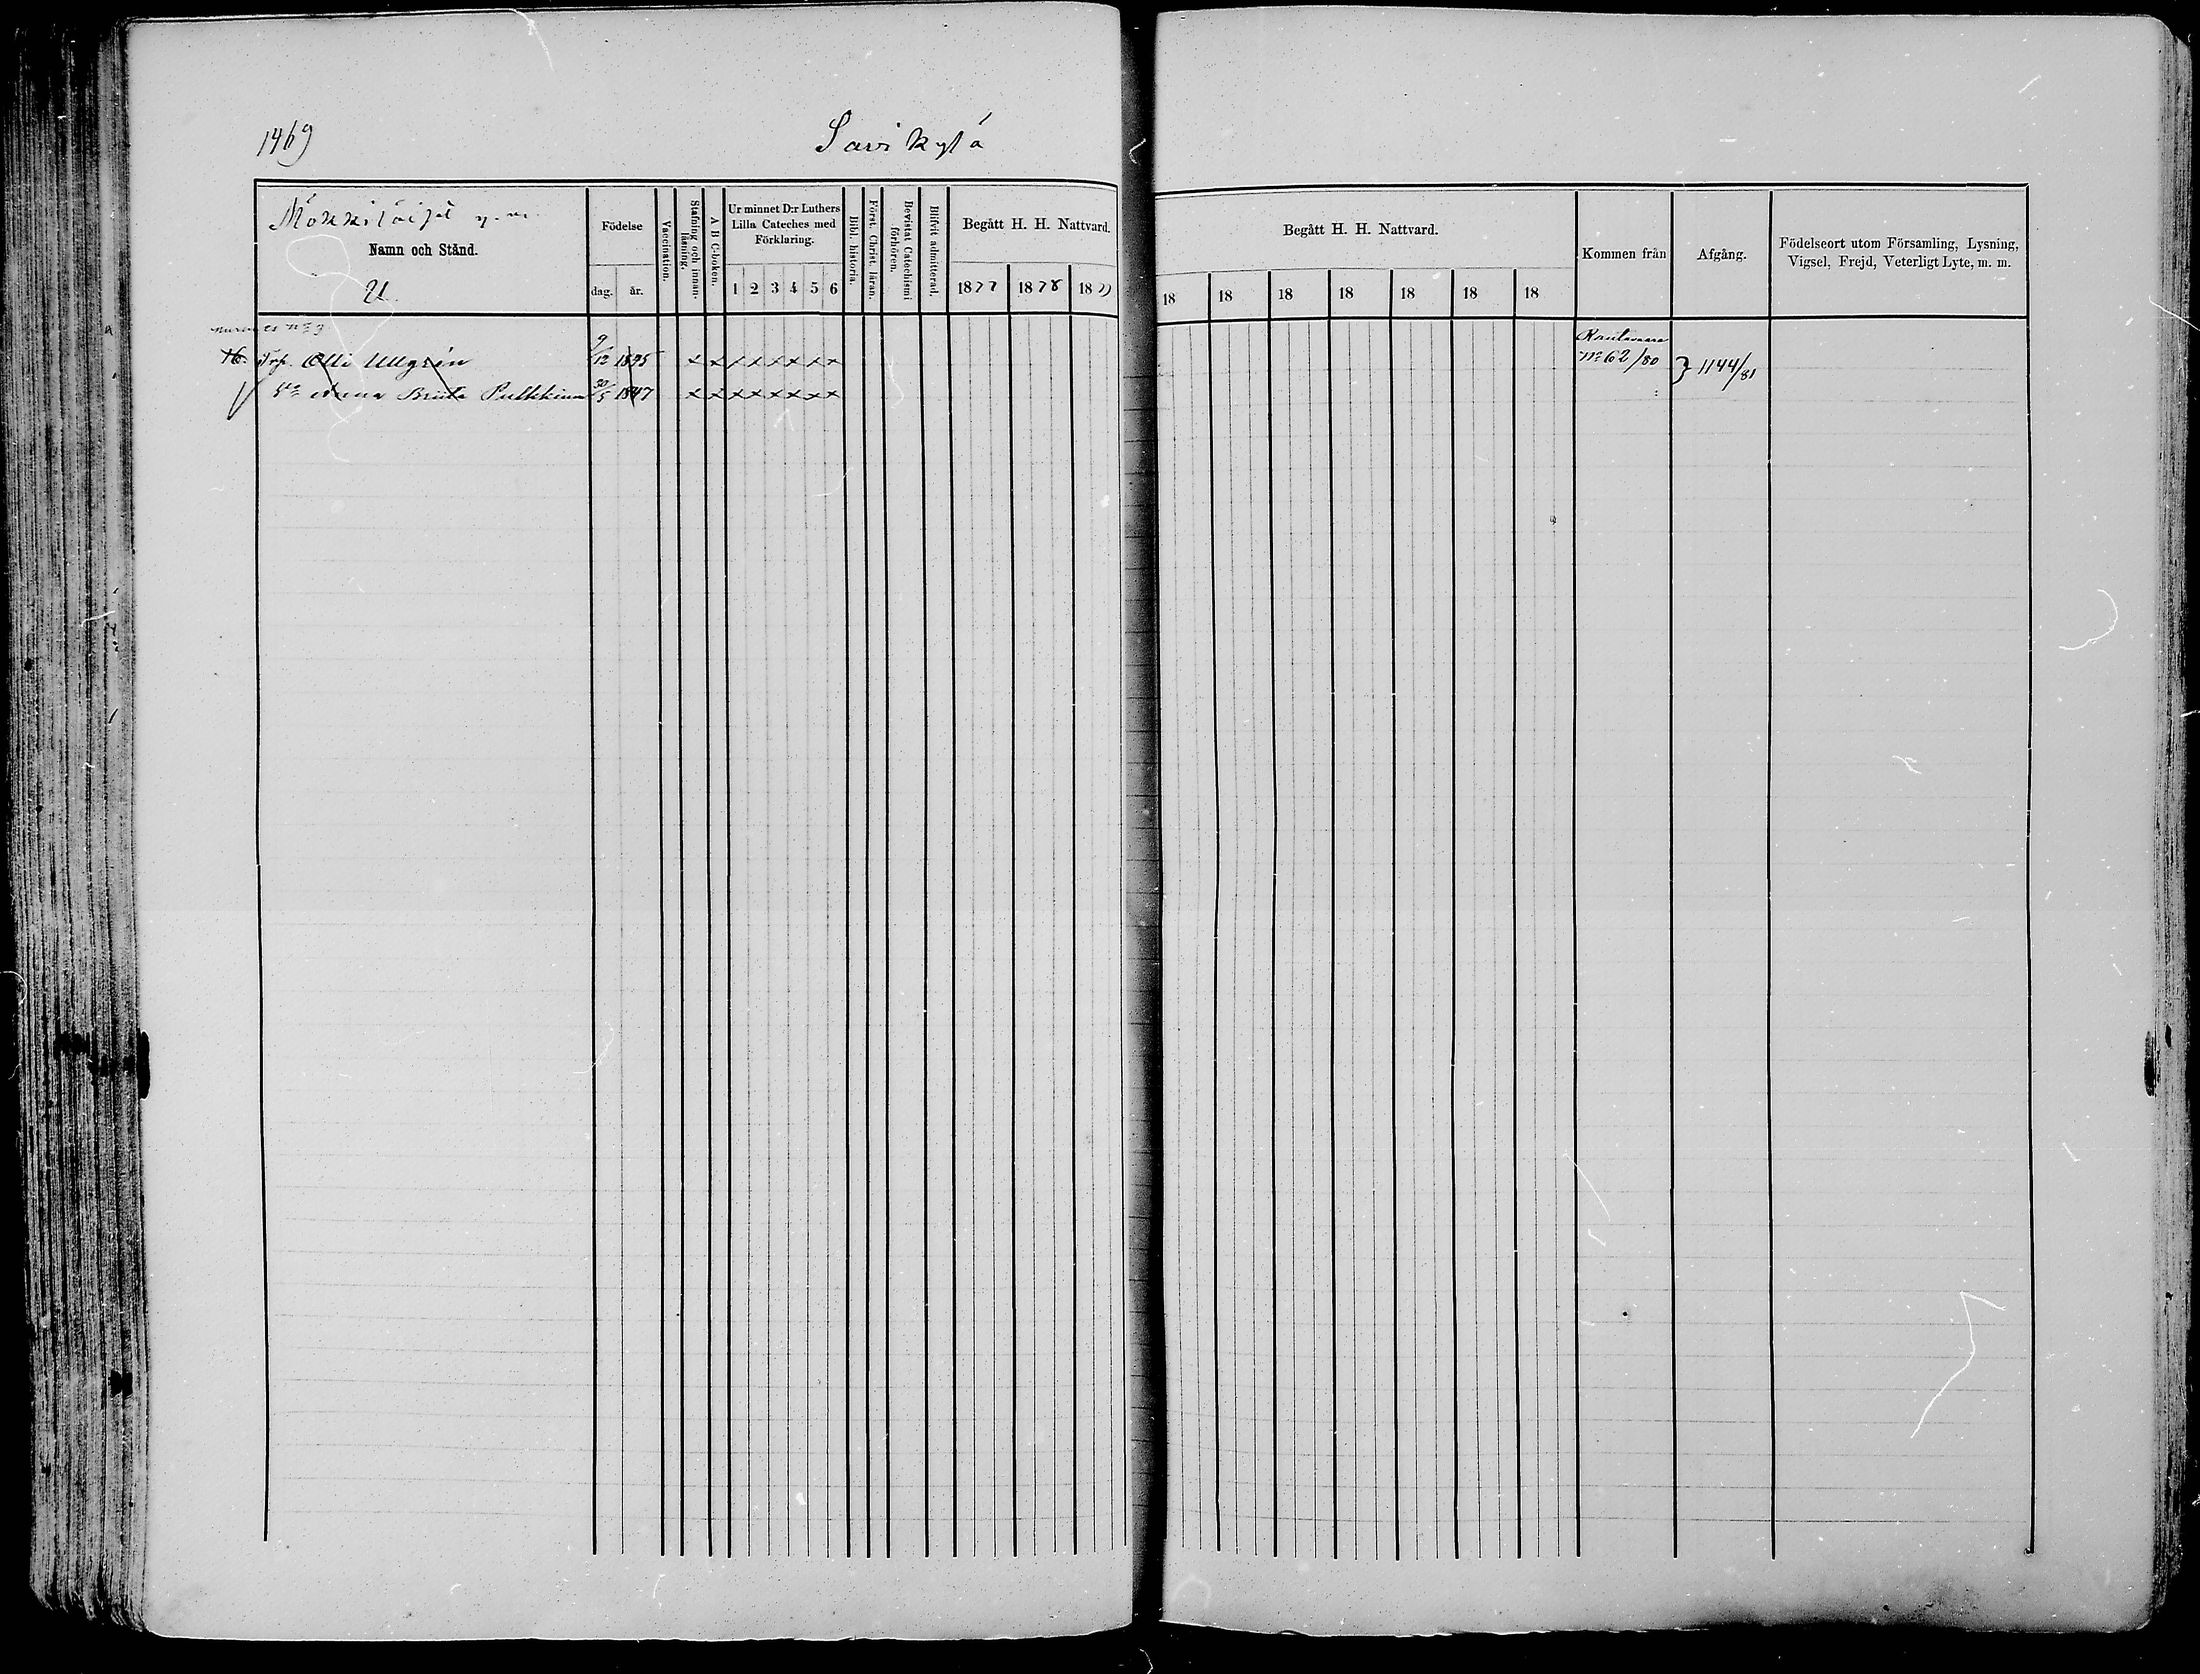 1469
Savikylä
Mökkiläiset y. m.
Namn och Stånd.
U.
Födelse
dag. år.
Vaccination.
Stafning och innan-
läsning.
A B C-boken.
Ur minnet D:r Luthers
Lilla Cateches med
Förklaring.
1 2 3 4 5 6
Bibl. historia.
Först. Christ. läran.
Bevistat Catechismi
förhören.
Blifvit admitterad.
Begått H. H. Nattvard.
1877 1878 1879
Begått H. H. Nattvard.
18 18 18 18 18 18 18
Kommen från
Afgång.
Födelseort utom Församling, Lysning,
Vigsel, Frejd, Veterligt Lyte, m. m.
Nurmes No 3
Olli Ullgrén 9/12 1845 x x x x x x x x Rautavaara No 62/80 } 1144/81
Anna Briita Pulkkinen 30/5 1847 x x x x x x x x